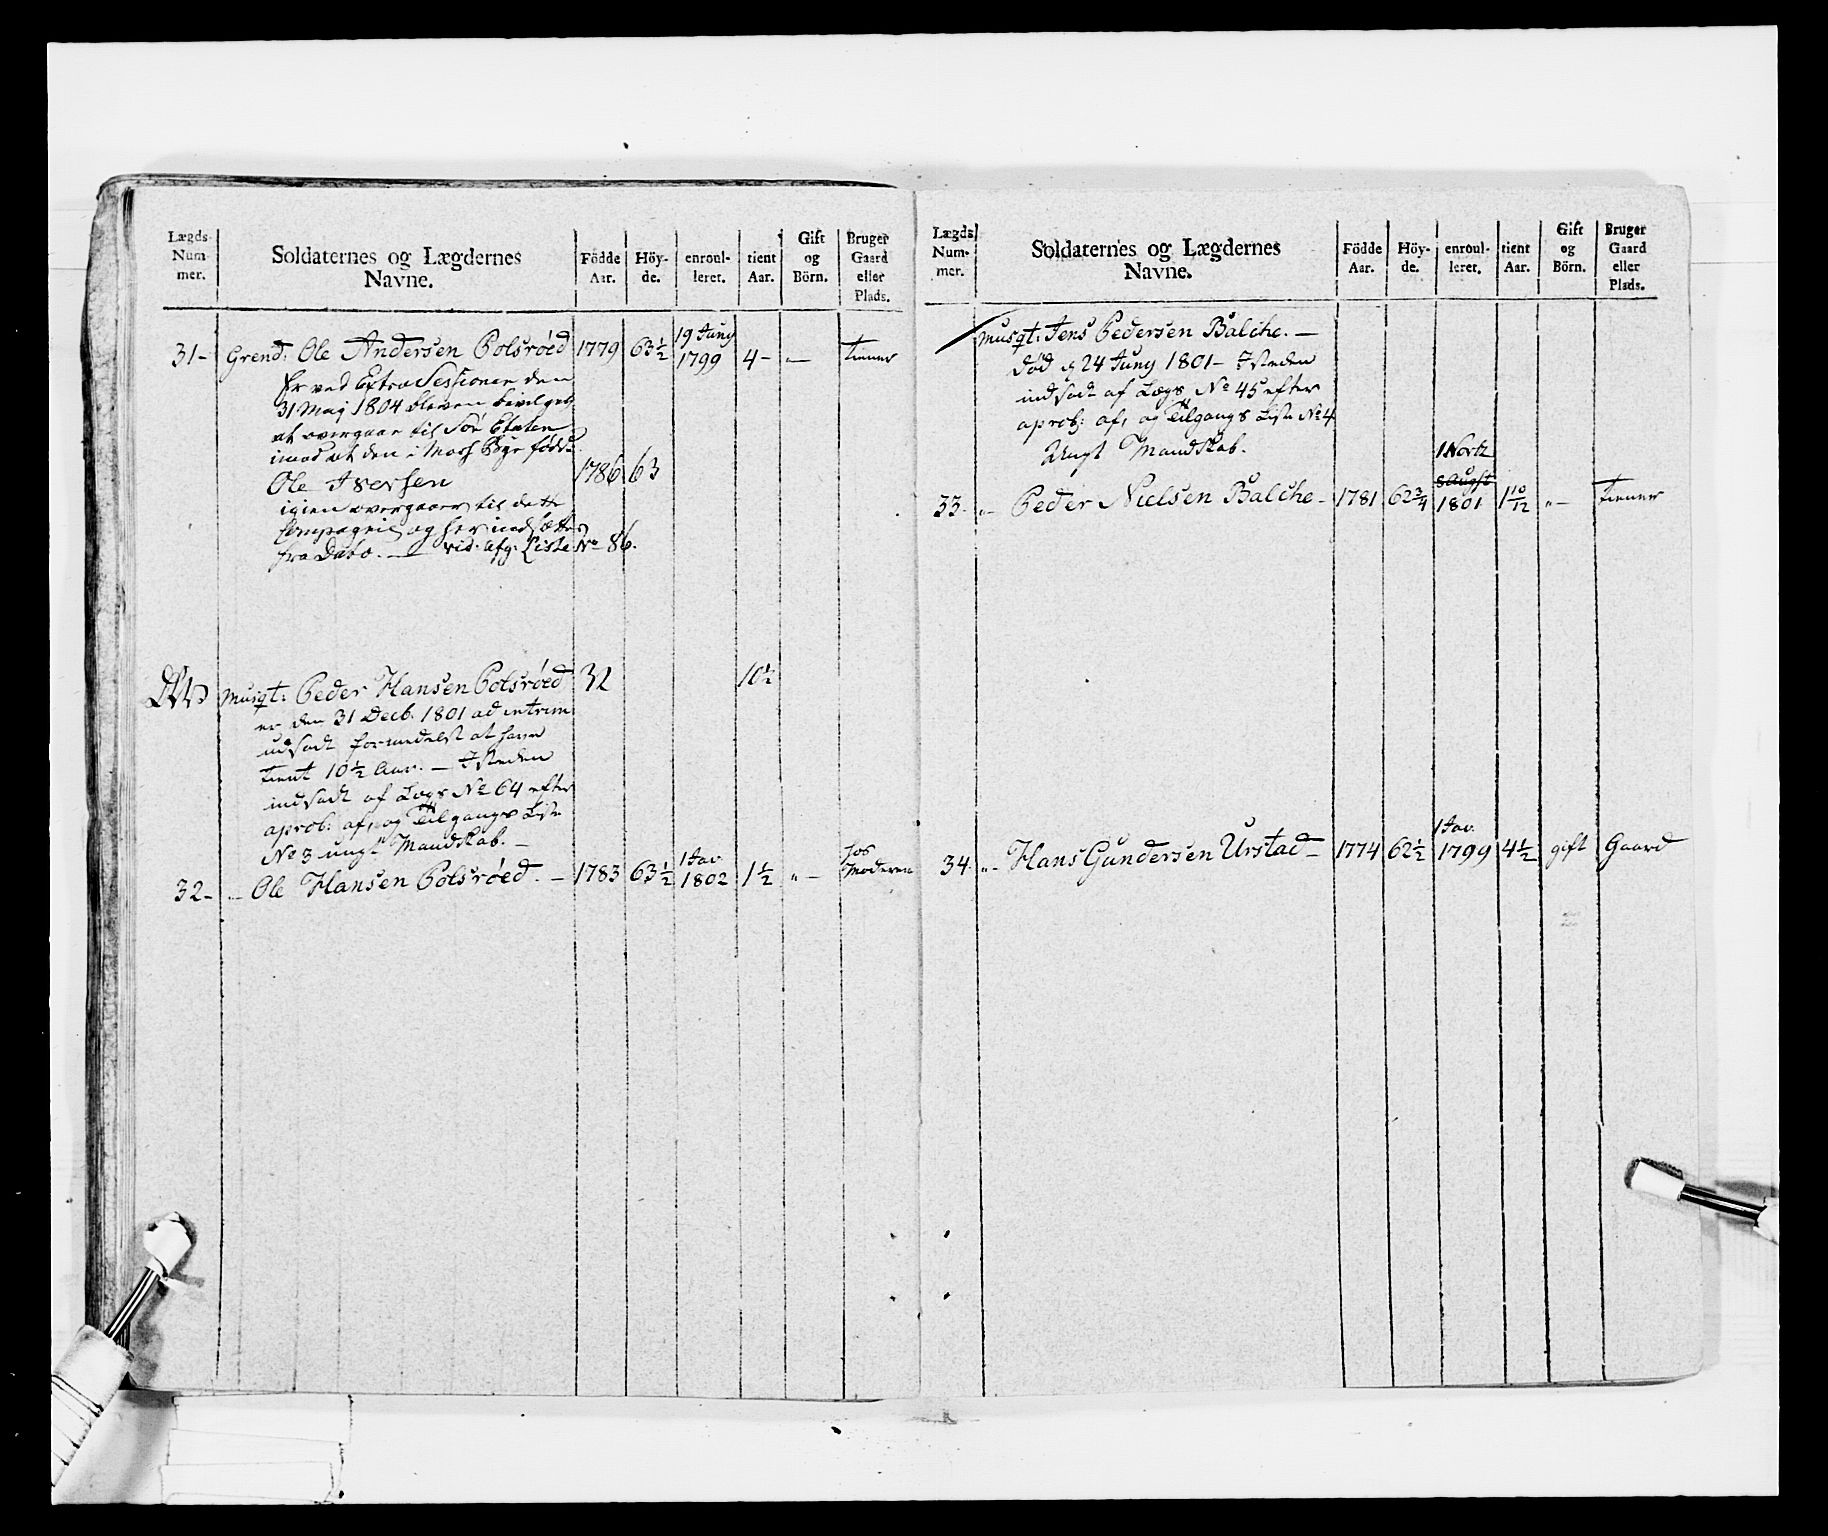 Lægds Num- mer.
Soldaternes og Lægdernes Navne.
Födde Aar.
Höy- de.
enroul- leret.
tient Aar.
Gift og Börn.
Bruger Gaard eller Plads.
31- Grend: Ole Andersen Polsröed 1779 63½ 19 Juny 1799 4- „- tiener
Er ved Extra Sessionen den
31 Maj 1804 bleven bevilget
at overgaae til Söe Etaten
imod at den i Moss Bÿe födde
Ole Iversen 1786 63
igien overgaaer til dette
Compagnie og her indsættes
fra Dato. — vid: Afg: Liste No 86.
Musqt: Peder Hansen Polsröed 32 10½
er den 31 Decb. 1801 ad intrim
udsadt formedelst at have
tient 10½ Aar. — I steden
indsadt af Lægs No 64 efter
aprob: af, og Tilgangs Liste
No 3 ungt Mandskab. —
32- „- Ole Hansen Polsröed. — 1783 63½ 1 Jav. 1802 1½ „- hos Moderen
Lægds Num- mer.
Soldaternes og Lægdernes Navne.
Födde Aar.
Höy- de.
enroul- leret.
tient Aar.
Gift og Börn.
Bruger Gaard eller Plads.
Musqt: Jens Pedersen Balche. —
död d 24 Juny 1801 — I steden
indsadt af Lægs No 45 efter
aprob: af, og Tilgangs Liste No 4
Ungt Mandskab.
33- „- Peder Nielsen Balche- 1781 62¾ 1 Nortz 8 Augst 1801 1 10/12 „- tiener
34- „- Hans Gundersen Urstad- 1774 62½ 1 Jav. 1799 4½ gift Gaard